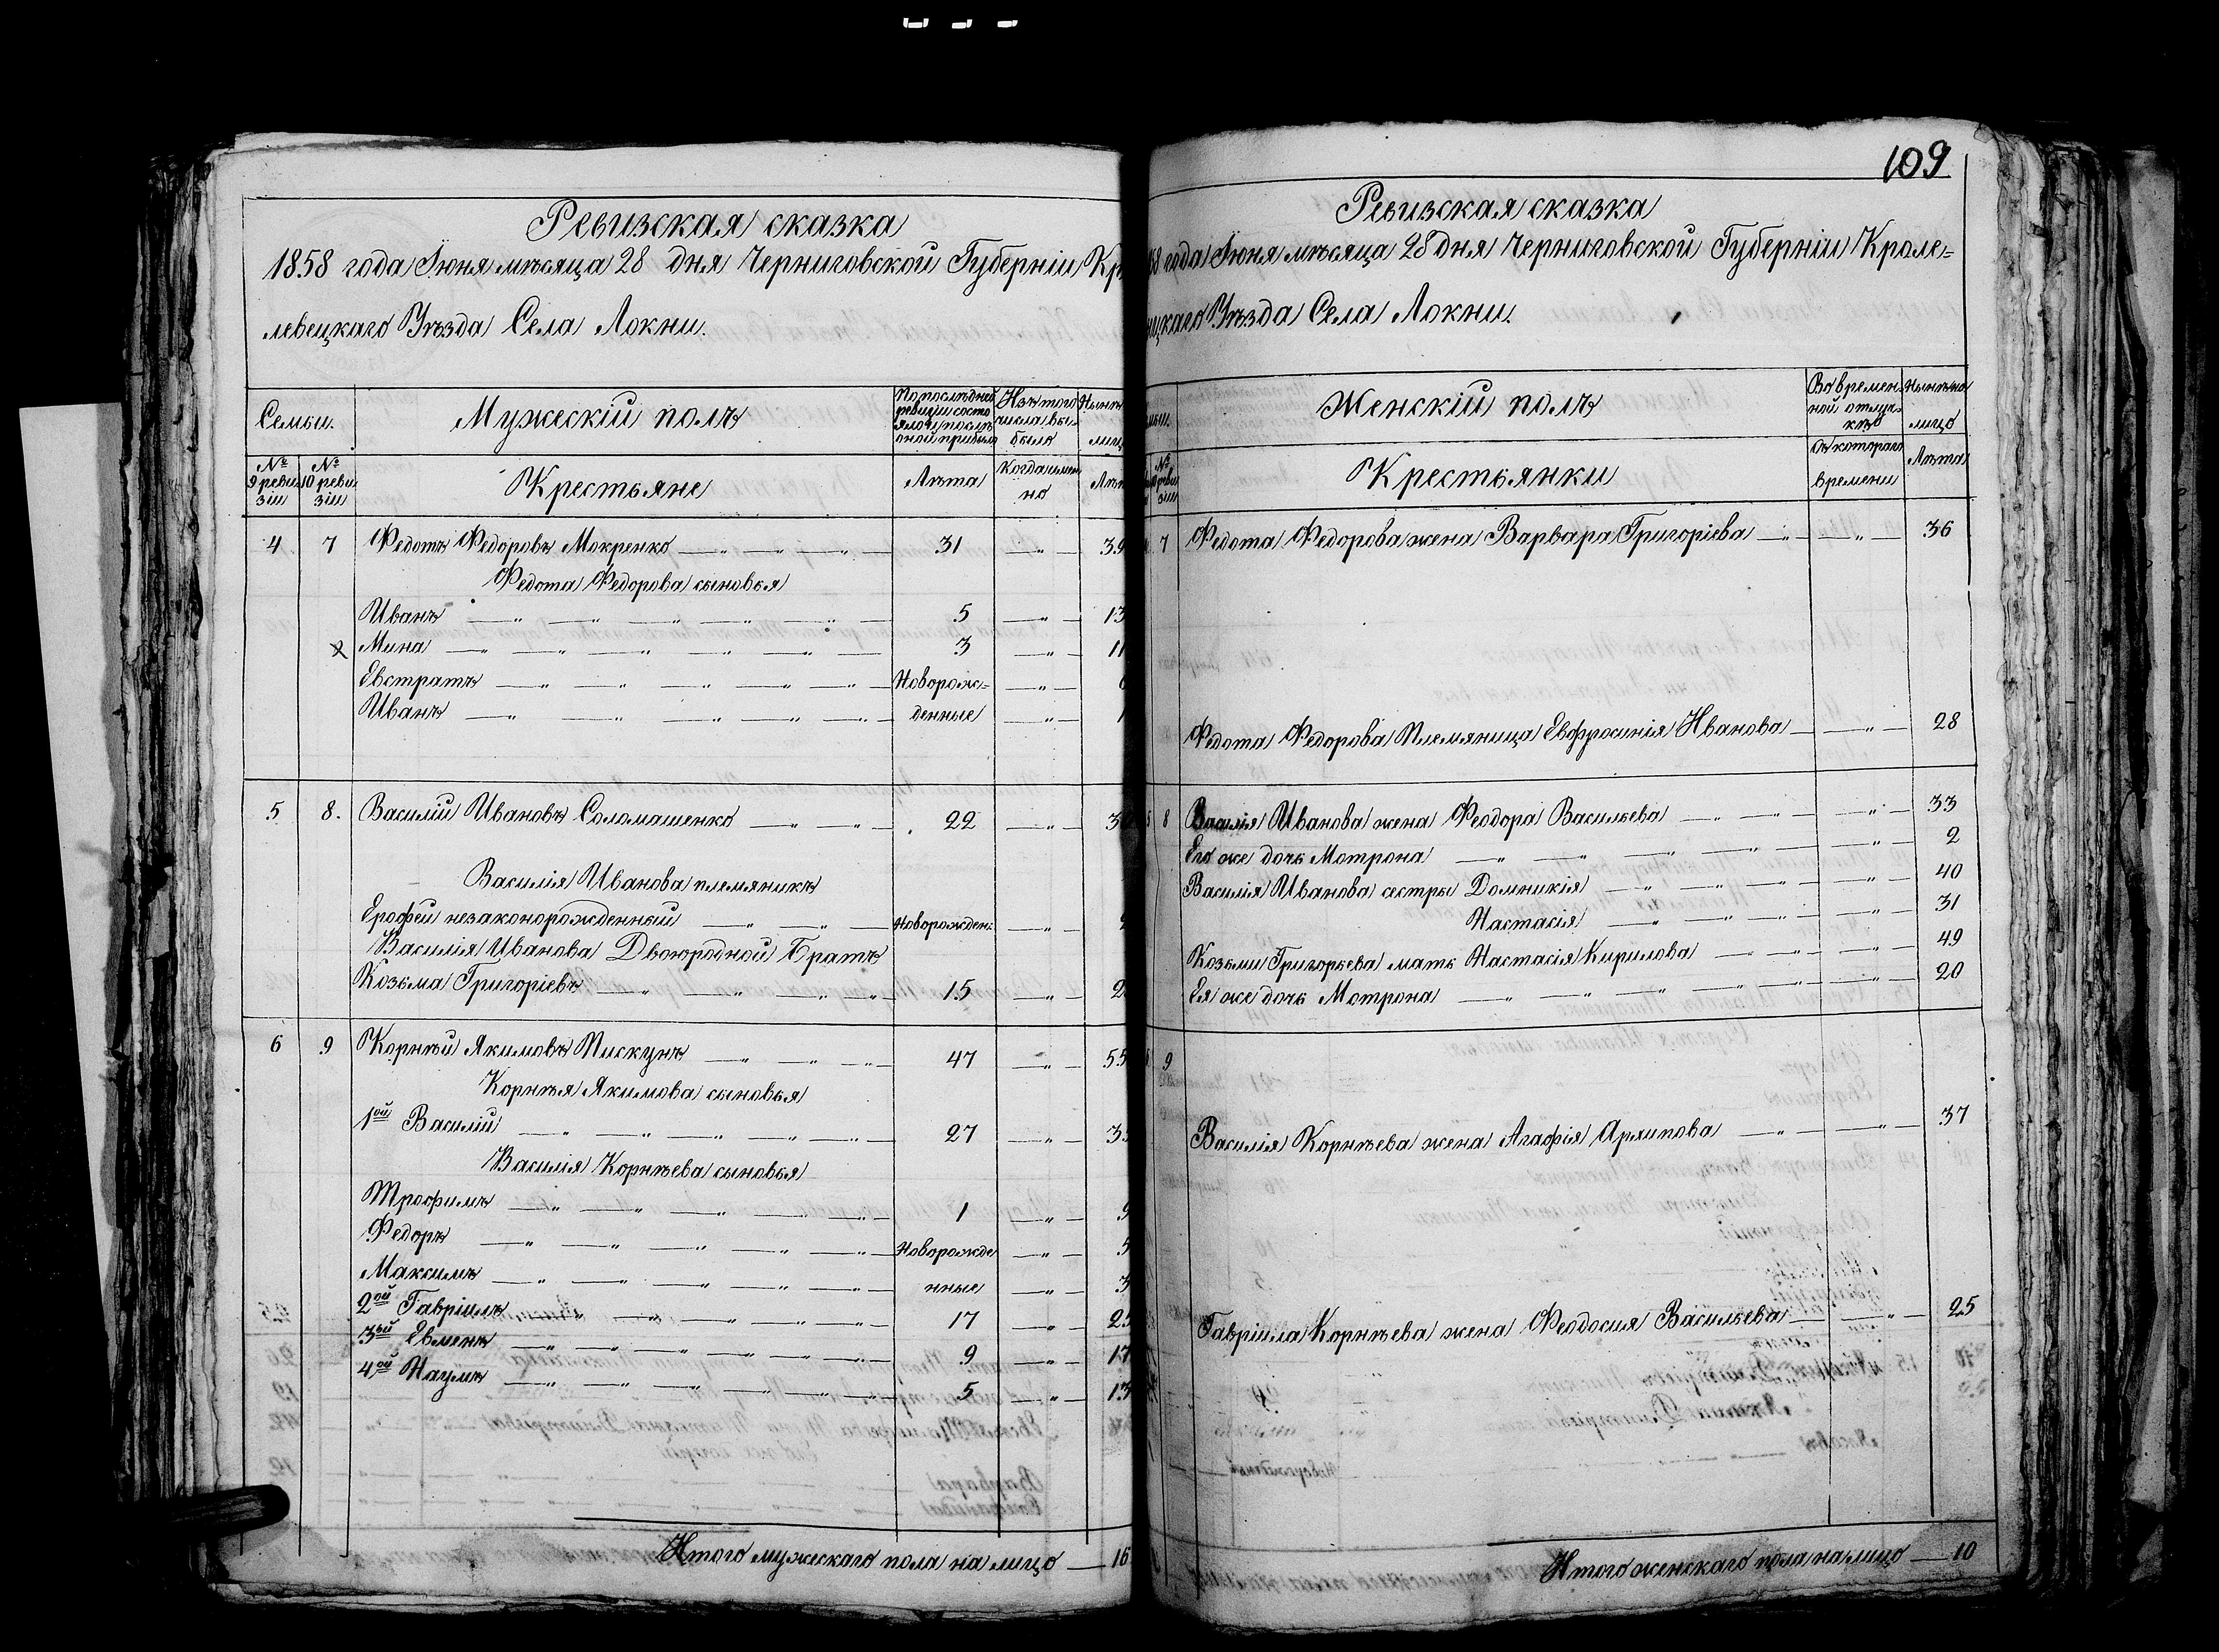 Ревизская сказка
1858 года Июня мѣсяца 28 дня Черниговской Губерніи Кр
левецкаго Уѣзда Села Локни.
Семьи.
Мужескій полъ
По послѣдней ревизіи состояло и послѣ оной прибыло
Изъ того числа выбыло
Нынѣ лиц
№ 9 ревизіи
№ 10 ревизіи
Крестьяне
Лѣта
Когда именно
Лѣт
4 7 Федотъ Федоровъ Мокренко 31 39
Федота Федорова сыновья
Иванъ 5 13
Мина 3 11
Евстратъ Новорож=
Иванъ денные 1
5 8. Василій Ивановъ Соломашенко 22 30
Василія Иванова племяникъ
Ерофей незаконорожденный Новорожден:
Василія Иванова Двоюродной Братъ
Козьма Григоріевъ 15 2
6 9 Корнѣй Якимовъ Пискунъ 47 55
Корнѣя Якимова сыновья
1ой Василій 27 3
Василія Корнѣева сыновья
Трофимъ 1 9
Федоръ Новорожде 5
Максимъ нные 3
2ой Гавріилъ 17 25
3ій Евменъ 9 17
4ой Наумъ 5 13
Итого мужескаго пола на лицо — 16
109
Ревизская сказка
58 года Июня мѣсяца 28 дня Черниговской Губерніи Кроле=
вицкаго Уѣзда Села Локни.
мьи.
Женскій полъ
Во временной отлучкѣ
Нынѣ на лицо
№ 10 ревизіи
Крестьянки
Съ котораго времени
Лѣта
7 Федота Федорова жена Варвара Григоріева 36
Федота Федорова Племяница Евфросинія Иванова 28
5 8 Василія Иванова жена Феодора Васильева 33
Его же дочь Мотрона 2
Василія Иванова сестры Домникія 40
Настасія 31
Козьми Григорьева мать Настасія Кирилова 49
Ея же дочь Мотрона 20
9
Василія Корнѣева жена Агафія Архипова 37
Гавріила Корнѣева жена Феодосия Васильева 25
Итого женскаго пола на лицо — 10